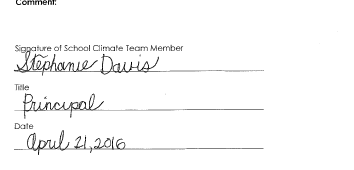 Comment:
Signature of School Climate Team Member
Stephanie Davis
Title
Principal
Date
April 21, 2016